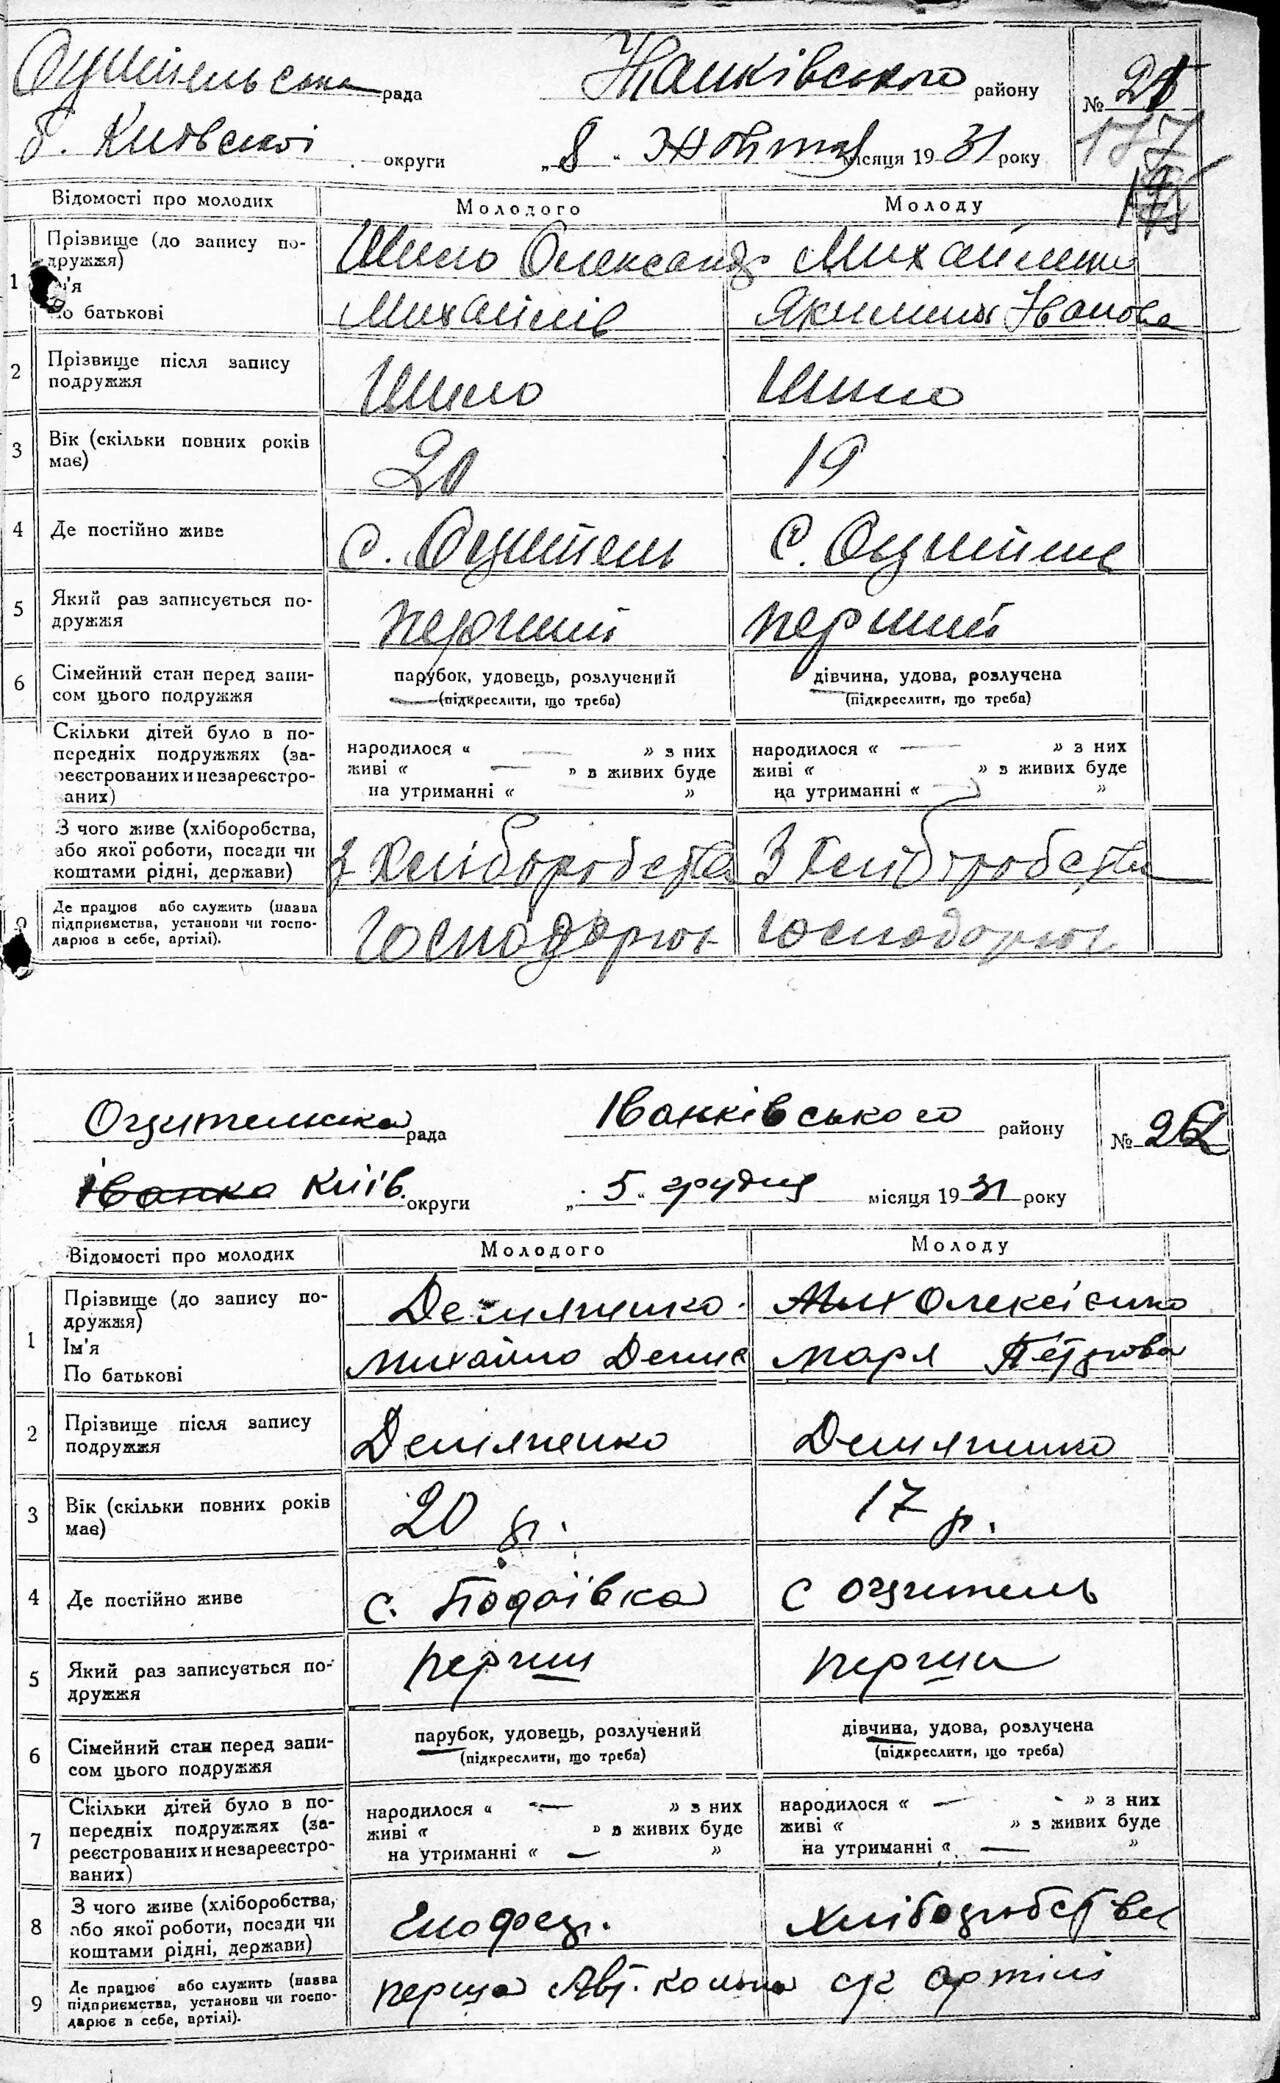 Оцительська рада Іванківського району № 21
б. Київської округи „8" жовтня місяця 1931 року
177
Відомості про молодих Молодого Молоду
1 Прізвище (до запису по- Шило Олександр Михайленко
дружжя)
м'я
По батькові Михайлів Якилина Іванова
2 Прізвище після запису Шило Шило
подружжя
3 Вік (скільки повних років 20 19
має)
4 Де постійно живе с. Оцитель с. Оцитель
5 Який раз записується по- перший перший
дружжя
6 Сімейний стан перед запи- парубок, удовець, розлучений дівчина, удова, розлучена
сом цього подружжя (підкреслити, що треба) (підкреслити, що треба)
Скільки дітей було в по-
передніх подружжях (за- народилося « — » з них народилося « — » з них
реєстрованих и незареєстро- живі « — » в живих буде живі « » з живих буде
ваних) на утриманні « » на утриманні « »
З чого живе (хліборобства, з Хліборобства З Хліборобства
або якої роботи, посади чи
коштами рідні, держави)
9 Де працює або служить (назва Господарює господарює
підприємства, установи чи госпо-
дарює в себе, артілі).
Оцительська рада Іванківського району № 22
Іванко Київ. округи „5" грудня місяця 1931 року
Відомості про молодих Молодого Молоду
1 Прізвище (до запису по- Демяненко Мих Олексієнко
дружжя)
Ім'я Михайло Денис Маря Петрова
По батькові
2 Прізвище після запису Демяненко Демяненко
подружжя
3 Вік (скільки повних років 20 р. 17 р.
має)
4 Де постійно живе с. с оцитель
5 Який раз записується по- перши перши
дружжя
6 Сімейний стан перед запи- парубок, удовець, розлучений дівчина, удова, розлучена
сом цього подружжя (підкреслити, що треба) (підкреслити, що треба)
7 Скільки дітей було в по- народилося « — » з них народилося « — » з них
передніх подружжях (за- живі « » в живих буде живі « » з живих буде
реєстрованих и незареєстро- на утриманні « — » на утриманні « — »
ваних)
8 З чого живе (хліборобства, Шофер. хліборобства
або якої роботи, посади чи
коштами рідні, держави)
9 Де працює або служить (назва перша Авт. колона с/г артілі
підприємства, установи чи госпо-
дарює в себе, артілі).